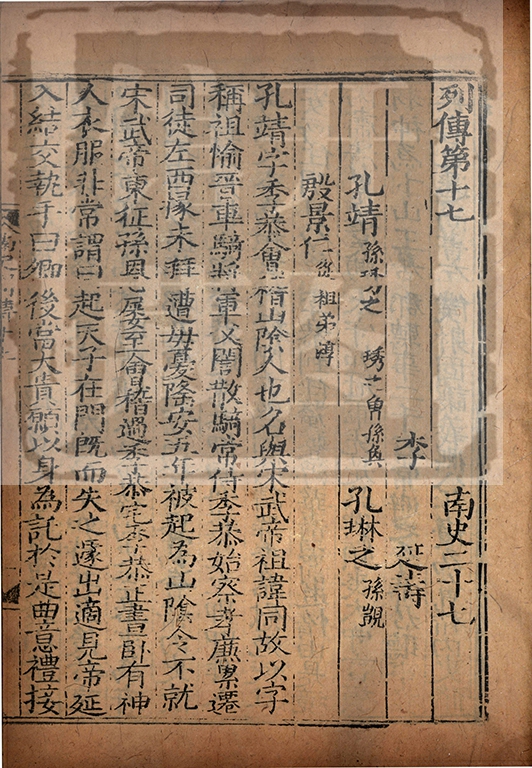 列傳第十七 南史二十七
李 延壽
孔靖 孫琇之 琇之曾孫奐 孔琳之 孫覬
殷景仁 從祖弟淳
孔靖字季恭會稽山陰人也名與宋武帝祖諱同故以字
稱祖愉晉車騎將軍父誾散騎常侍季恭始察孝廉累遷
司徒左西掾未拜遭母憂隆安五年被起為山陰令不就
宋武帝東征孫恩屢至會稽過季恭宅季恭正晝卧有神
人衣服非常謂曰起天子在門既而失之遽出適見帝延
入結交執手曰卿後當大貴願以身為託於是曲意禮接